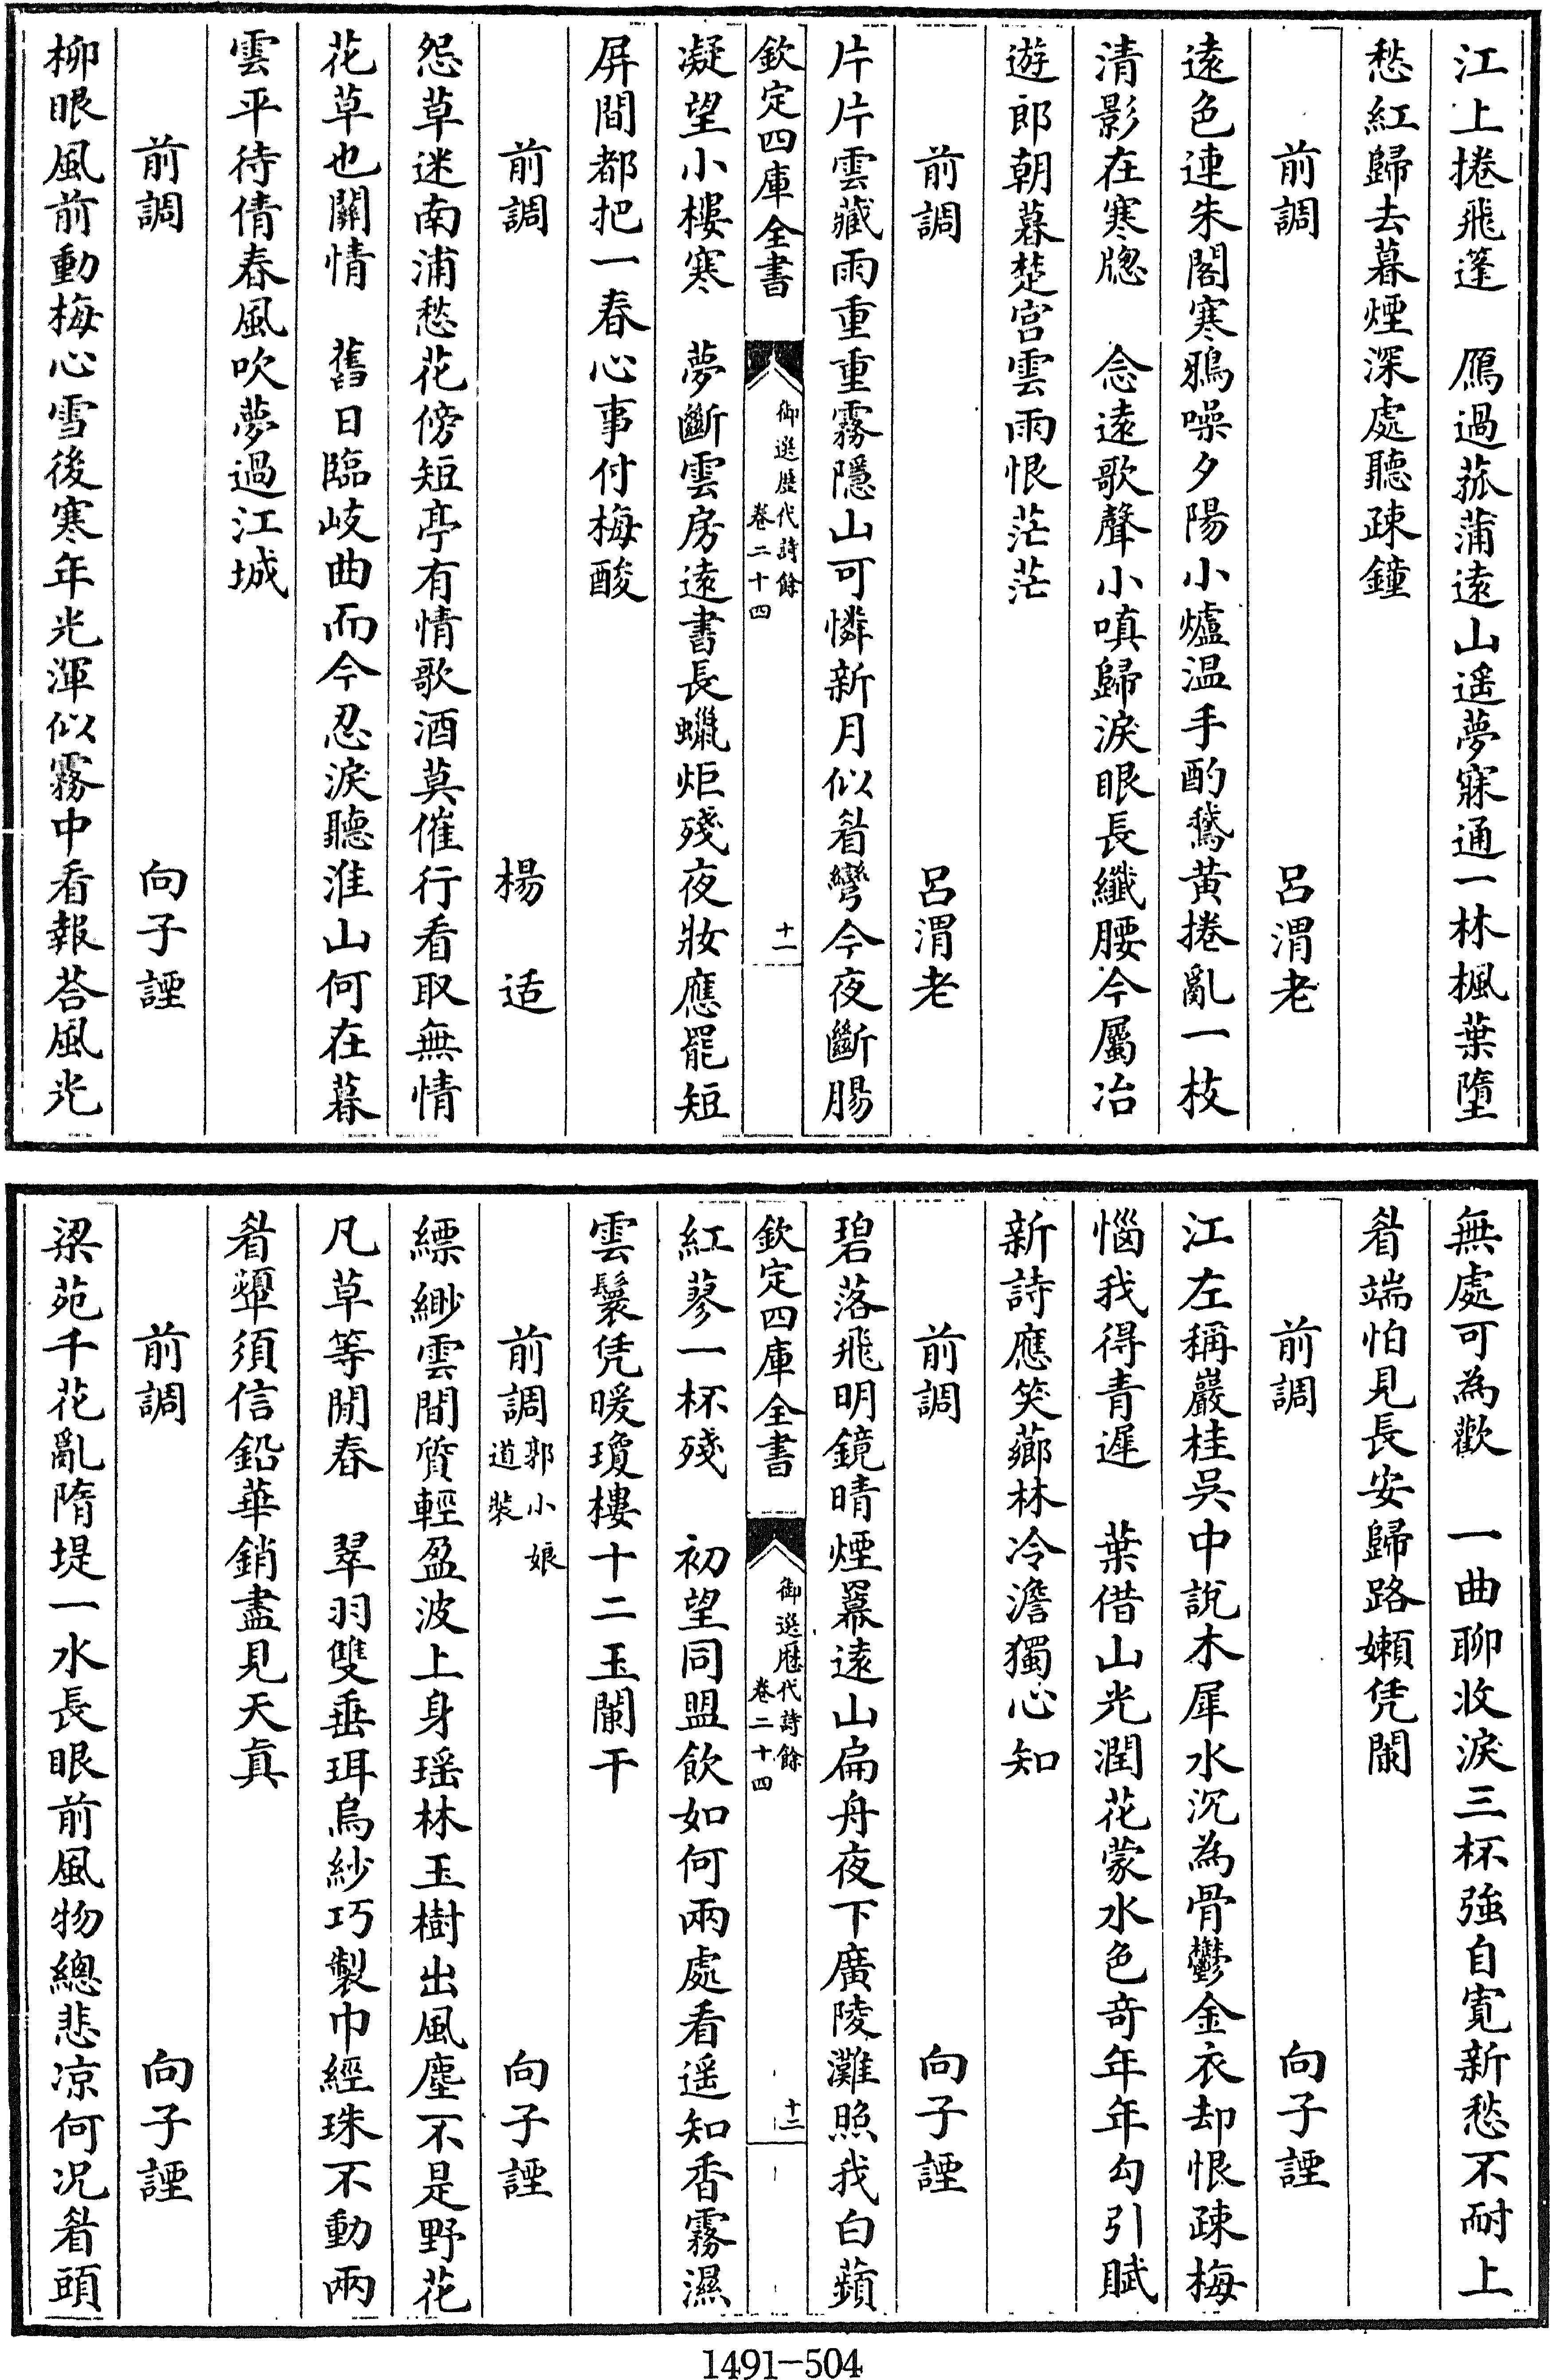 江上捲飛蓬　鴈過菰蒲遠山遥夢寐通一林楓葉墮
愁紅歸去暮煙深處聽疎鐘
前調　呂渭老
遠色連朱閣寒鴉噪夕陽小爐温手酌鵞黄捲亂一枝
清影在寒牕　念遠歌聲小嗔歸淚眼長纖腰今屬冶
遊郎朝暮楚宫雲雨恨茫茫
前調　呂渭老
片片雲藏雨重重霧隱山可憐新月似眉彎今夜斷腸
欽定四庫全書　御選歴代詩餘　卷二十四　十一
凝望小樓寒　夢斷雲房遠書長蠟炬殘夜妝應罷短
屏間都把一春心事付梅酸
前調　楊适
怨草迷南浦愁花傍短亭有情歌酒莫催行看取無情
花草也關情　舊日臨岐曲而今忍淚聽淮山何在暮
雲平待倩春風吹夢過江城
前調　向子諲
柳眼風前動梅心雪後寒年光渾似霧中看報荅風光
無處可為歡　一曲聊收淚三杯強自寛新愁不耐上
眉端怕見長安歸路嬾凭闌
前調　向子諲
江左稱巖桂吳中說木犀水沉為骨鬱金衣却恨疎梅
惱我得青遲　葉借山光潤花蒙水色竒年年勾引賦
新詩應笑薌林冷澹獨心知
前調　向子諲
碧落飛明鏡晴煙羃遠山扁舟夜下廣陵灘照我白蘋
欽定四庫全書　御選歴代詩餘　卷二十四　十二
紅蓼一杯殘　初望同盟飲如何兩處看遥知香霧濕
雲鬟凭暖瓊樓十二玉闌干
前調　郭小娘道裝　向子諲
縹緲雲間質輕盈波上身瑶林玉樹出風塵不是野花
凡草等閒春　翠羽雙垂珥烏紗巧製巾經珠不動兩
眉顰須信鉛華銷盡見天真
前調　向子諲
梁苑千花亂隋堤一水長眼前風物總悲凉何况眉頭
1491-504